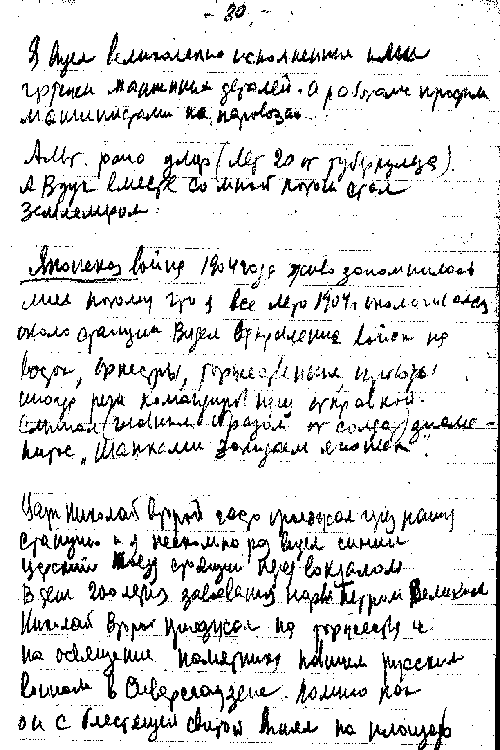 - 30 -
Я видел великолепно исполненные ими
чертежи машинных деталей. А работали простыми
машинистами на паровозах.
Альб. рано умер (лет 20 от туберкулеза).
А Вдуч вместе со мной потом стал
землемером.
Японская война 1904 года живо запомнилась
мне потому что я все лето 1904 г околачивался
около станции. Видел отправление войск на
восток, оркестры, торжественные проводы
иногда речи командиров при отправке.
Слышал (главным образом от солдат) знаме-
нитое „Шапками закидаем японцев".
Царь Николай Второй часто проезжал через нашу
станцию и я несколько раз видел синий
царский поезд стоящий перед вокзалом
В день 200 летия завоевания Нарвы Петром Великим
Николай Второй приезжал на торжества и
на освящение памятника павшим русским
воинам в Сиверсгаузене. Помню как
он с блестящей свитой вышел на площадь